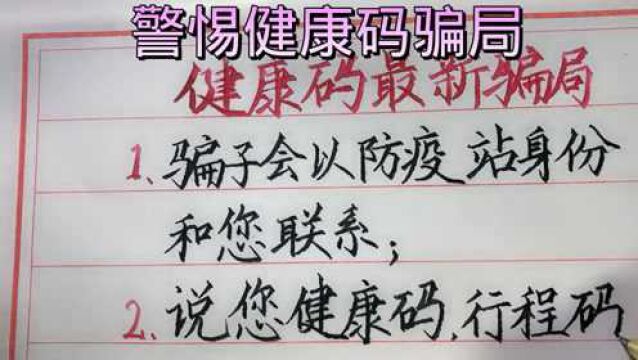 警惕健康码骗局
健康码最新骗局
1、骗子会以防疫站身份
和您联系；
2、说您健康码,行程码